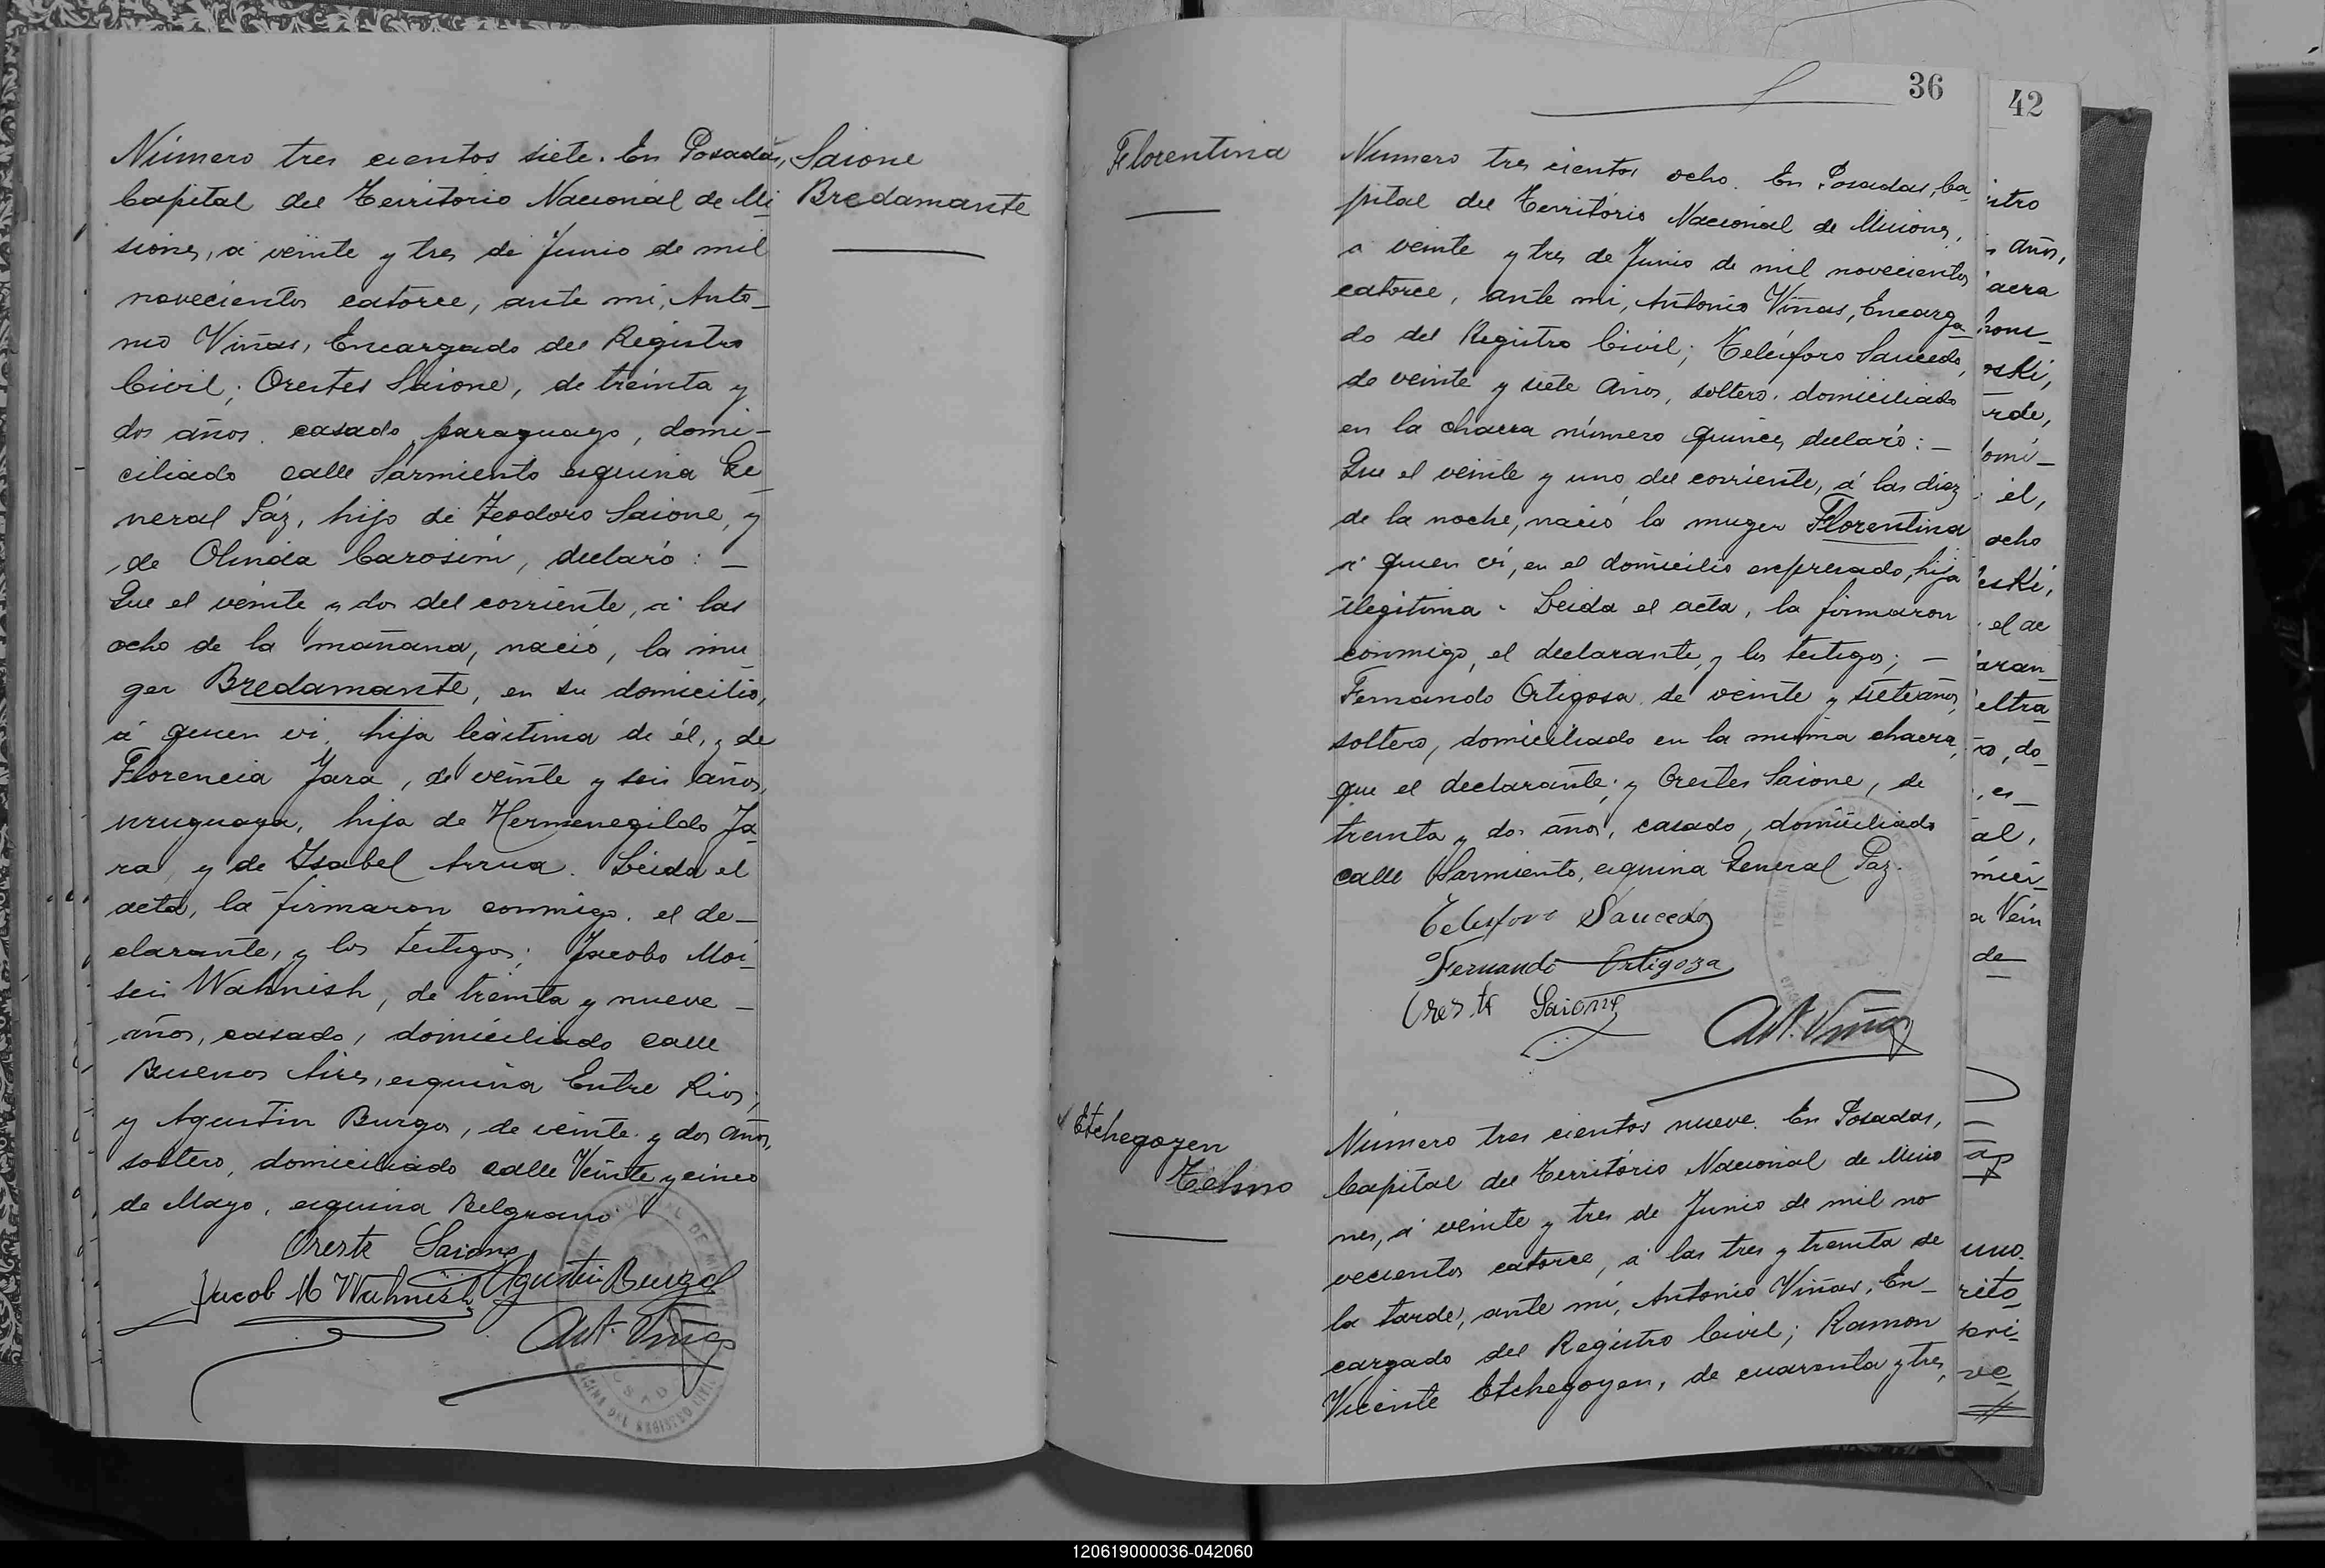 Número tres cientos siete. En Posadas,
Capital del Territorio Nacional de Mi_
siones, á veinte y tres de Junio de mil
novecientos catorce, ante mí, Anto_
nio Viñas, Encargado del Registro
Civil; Orestes Saione, de treinta y
dos años, casado, paraguayo, domi-
ciliado calle Sarmiento esquina Ge_
neral Páz, hijo de Teodoro Saione, y
de Olinda Carosini, declaró: _
Que el veinte y dos del corriente, á las
ocho de la mañana, nació, la mu_
ger Bredamante, en su domicilio,
á quien vi, hija legítima de él, y de
Florencia Jara, de veinte y seis años,
uruguaya, hija de Hermenegildo Ja_
ra, y de Isabel Arrua. Leida el
acta, la firmaron conmigo, el de_
clarante, y los testigos; Jacobo Moi_
seis Wahnish, de treinta y nueve _
años, casado, domiciliado calle
Buenos Aires, esquina Entre Rios;
y Agustin Burgos, de veinte y dos años,
soltero, domiciliado calle Veinte y cinco
de Mayo, esquina Belgrano
Oreste Saione
Jacob M Wahnish Agustin Burgos
Ant. Viñas
Saione
Bredamante
36
Florentina
Número tres cientos ocho. En Posadas, Ca_
pital del Territorio Nacional de Misiones,
á veinte y tres de Junio de mil novecientos
catorce, ante mí, Antonio Viñas, Encarga_
do del Registro Civil; Telésforo Saucedo,
de veinte y siete años, soltero, domiciliado
en la chacra número quince, declaró: _
Que el veinte y uno del corriente, á las diez
de la noche, nació la muger Florentina
á quien vi, en el domicilio expresado, hija
ilegítima. Leida el acta, la firmaron
conmigo, el declarante, y los testigos; _
Fernando Ortigosa, de veinte y siete años,
soltero, domiciliado en la misma chacra,
que el declarante; y Orestes Saione, de
treinta y dos años, casado, domiciliado
calle Sarmiento, esquina General Paz.
Telesforo Saucedo
Fernando Ortigoza
Oreste Saione
Ant. Viñas
Etchegoyen
Telmo
Número tres cientos nueve. En Posadas,
Capital del Territorio Nacional de Misio
nes, á veinte y tres de Junio de mil no
vecientos catorce, á las tres y treinta de
la tarde, ante mí, Antonio Viñas, En_
cargado del Registro Civil; Ramon
Vicente Etchegoyen, de cuarenta y tres,
42
ntro
años,
acra
oski,
rde,
omi_
él,
ocho
eski,
el de
aran_
eltra_
ro, do_
, es_
al,
a Vein
de
uno.
rito_
120619000036-042060